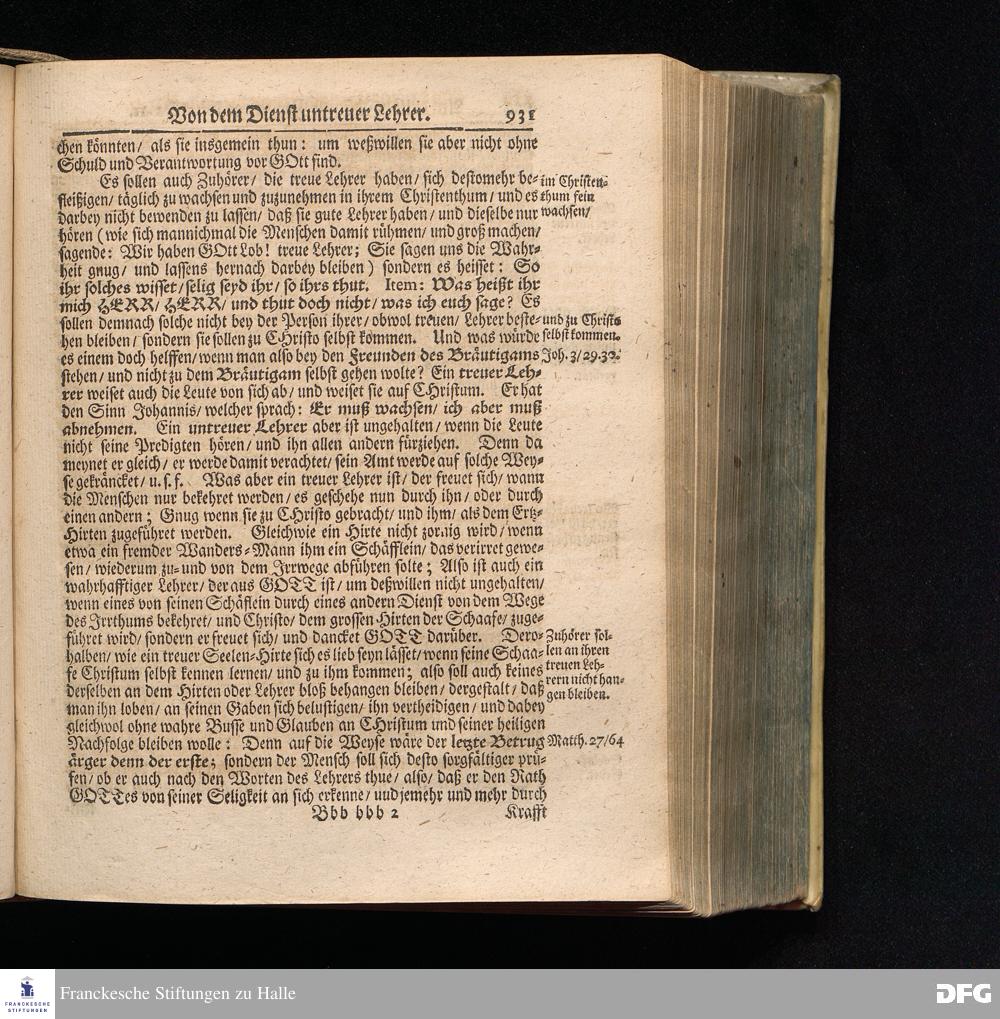 Von dem Dienst untreuer Lehrer. 931
chen könnten/ als sie insgemein thun: um weßwillen sie aber nicht ohne
Schuld und Verantwortung vor GOtt sind.
Es sollen auch Zuhörer/ die treue Lehrer haben/ sich destomehr be-
fleißigen/ täglich zu wachsen und zuzunehmen in ihrem Christenthum/ und es
darbey nicht bewenden zu lassen/ daß sie gute Lehrer haben/ und dieselbe nur
hören (wie sich mannichmal die Menschen damit rühmen/ und groß machen/
sagende: Wir haben GOtt Lob! treue Lehrer; Sie sagen uns die Wahr-
heit gnug/ und lassens hernach darbey bleiben) sondern es heisset: So
ihr solches wisset/ selig seyd ihr/ so ihrs thut. Item: Was heißt ihr
mich HERR/ HERR/ und thut doch nicht/ was ich euch sage? Es
sollen demnach solche nicht bey der Person ihrer/ obwol treuen/ Lehrer beste-
hen bleiben/ sondern sie sollen zu CHristo selbst kommen. Und was würde
es einem doch helffen/ wenn man also bey den Freunden des Bräutigams
stehen/ und nicht zu dem Bräutigam selbst gehen wolte? Ein treuer Leh-
rer weiset auch die Leute von sich ab/ und weiset sie auf CHristum. Er hat
den Sinn Johannis/ welcher sprach: Er muß wachsen/ ich aber muß
abnehmen. Ein untreuer Lehrer aber ist ungehalten/ wenn die Leute
nicht seine Predigten hören/ und ihn allen andern fürziehen. Denn da
meynet er gleich/ er werde damit verachtet/ sein Amt werde auf solche Wey-
se gekräncket/ u. s. f. Was aber ein treuer Lehrer ist/ der freuet sich/ wann
die Menschen nur bekehret werden/ es geschehe nun durch ihn/ oder durch
einen andern; Gnug wenn sie zu CHristo gebracht/ und ihm/ als dem Ertz-
Hirten zugeführet werden. Gleichwie ein Hirte nicht zornig wird/ wenn
etwa ein fremder Wanders-Mann ihm ein Schäfflein/ das verirret gewe-
sen/ wiederum zu- und von dem Irrwege abführen solte; Also ist auch ein
wahrhafftiger Lehrer/ der aus GOTT ist/ um deßwillen nicht ungehalten/
wenn eines von seinen Schäflein durch eines andern Dienst von dem Wege
des Irrthums bekehret/ und Christo/ dem grossen Hirten der Schaafe/ zuge-
führet wird/ sondern er freuet sich/ und dancket GOTT darüber. Dero-
halben/ wie ein treuer Seelen-Hirte sich es lieb seyn lässet/ wenn seine Schaa-
fe Christum selbst kennen lernen/ und zu ihm kommen; also soll auch keines
derselben an dem Hirten oder Lehrer bloß behangen bleiben/ dergestalt/ daß
man ihn loben/ an seinen Gaben sich belustigen/ ihn vertheidigen/ und dabey
gleichwol ohne wahre Busse und Glauben an CHristum und seiner heiligen
Nachfolge bleiben wolle: Denn auf die Weyse wäre der letzte Betrug
ärger denn der erste; sondern der Mensch soll sich desto sorgfältiger prü-
fen/ ob er auch nach den Worten des Lehrers thue/ also/ daß er den Rath
GOTTes von seiner Seligkeit an sich erkenne/ uud jemehr und mehr durch
Bbb bbb 2 Krafft
im Christen-
thum fein
wachsen/
und zu Christo
selbst kommen.
Joh. 3/29.30.
Zuhörer sol-
len an ihren
treuen Leh-
rern nicht han-
gen bleiben.
Matth. 27/64
FRANCKESCHE
STIFTUNGEN
Franckesche Stiftungen zu Halle
DFG